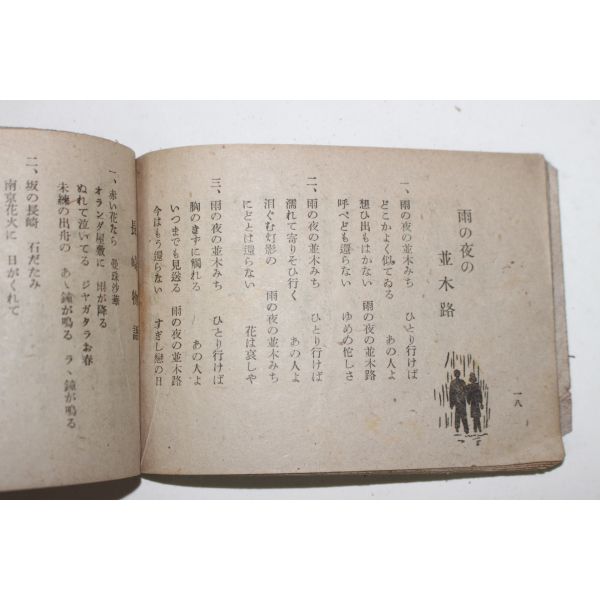 一八
雨の夜の
並木路
一、雨の夜の並木みち ひとり行けば
どこかよく似てゐる あの人よ
想ひ出もはかない 雨の夜の並木路
呼べども還らない ゆめの侘しさ
二、雨の夜の並木みち ひとり行けば
濡れて寄りそひ行く あの人よ
泪ぐむ灯影の 雨の夜の並木みち
にどとは還らない 花は哀しや
三、雨の夜の並木みち ひとり行けば
胸のきずに觸れる あの人よ
いつまでも見送る 雨の夜の並木路
今はもう還らない すぎし戀の日
長崎物語
一、赤い花なら 曼珠沙華
オランダ屋敷に 雨が降る
ぬれて泣いてる ジャガタラお春
未練の出舟の あゝ鐘が鳴る ラヽ鐘が鳴る
二、坂の長崎 石だたみ
南京花火に 日がくれて